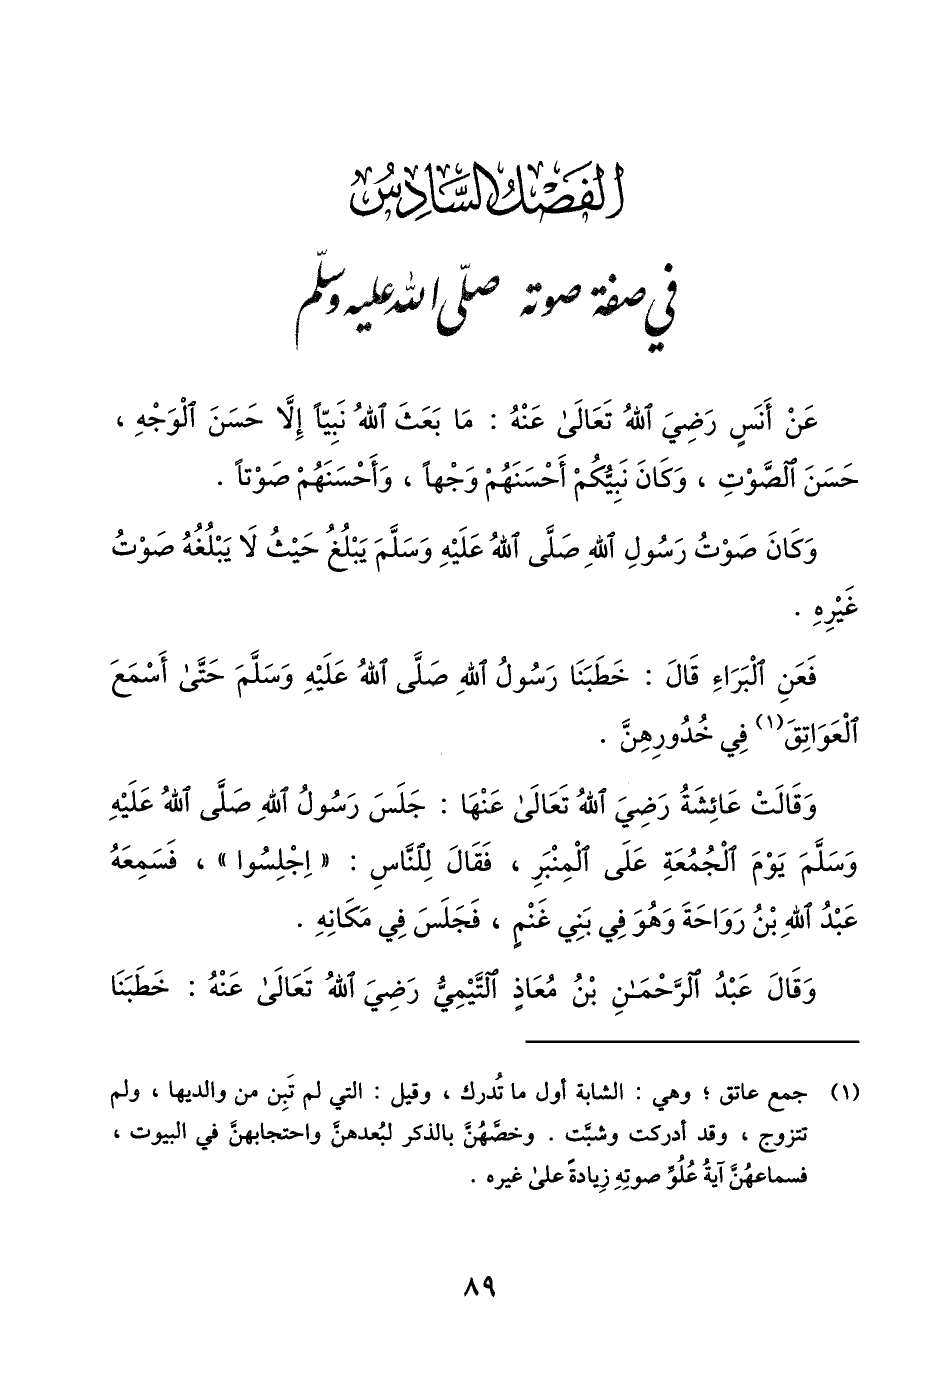 الفَصْلُ السَّادِسُ
في صفة صوته صلّى الله عليه وسلّم
عَنْ أَنَسٍ رَضِيَ ٱللهُ تَعَالَىٰ عَنْهُ : مَا بَعَثَ ٱللهُ نَبِيّاً إِلَّا حَسَنَ ٱلْوَجْهِ ،
حَسَنَ ٱلصَّوْتِ ، وَكَانَ نَبِيُّكُمْ أَحْسَنَهُمْ وَجْهاً ، وَأَحْسَنَهُمْ صَوْتاً .
وَكَانَ صَوْتُ رَسُولِ ٱللهِ صَلَّى ٱللهُ عَلَيْهِ وَسَلَّمَ يَبْلُغُ حَيْثُ لَا يَبْلُغُهُ صَوْتُ
غَيْرِهِ .
فَعَنِ ٱلْبَرَاءِ قَالَ : خَطَبَنَا رَسُولُ ٱللهِ صَلَّى ٱللهُ عَلَيْهِ وَسَلَّمَ حَتَّىٰ أَسْمَعَ
ٱلْعَوَاتِقَ(١) فِي خُدُورِهِنَّ .
وَقَالَتْ عَائِشَةُ رَضِيَ ٱللهُ تَعَالَىٰ عَنْهَا : جَلَسَ رَسُولُ ٱللهِ صَلَّى ٱللهُ عَلَيْهِ
وَسَلَّمَ يَوْمَ ٱلْجُمُعَةِ عَلَى ٱلْمِنْبَرِ ، فَقَالَ لِلنَّاسِ : « اِجْلِسُوا » ، فَسَمِعَهُ
عَبْدُ ٱللهِ بْنُ رَوَاحَةَ وَهُوَ فِي بَنِي غَنْمٍ ، فَجَلَسَ فِي مَكَانِهِ .
وَقَالَ عَبْدُ ٱلرَّحْمَـٰنِ بْنُ مُعَاذٍ ٱلتَّيْمِيُّ رَضِيَ ٱللهُ تَعَالَىٰ عَنْهُ : خَطَبَنَا
(١) جمع عاتق ؛ وهي : الشابة أول ما تُدرك ، وقيل : التي لم تَبِن من والديها ، ولم
تتزوج ، وقد أدركت وشبَّت . وخصَّهُنَّ بالذكر لبُعدهنَّ واحتجابهنَّ في البيوت ،
فسماعهُنَّ آيةُ عُلُوِّ صوتِهِ زِيادةً علىٰ غيره .
٨٩